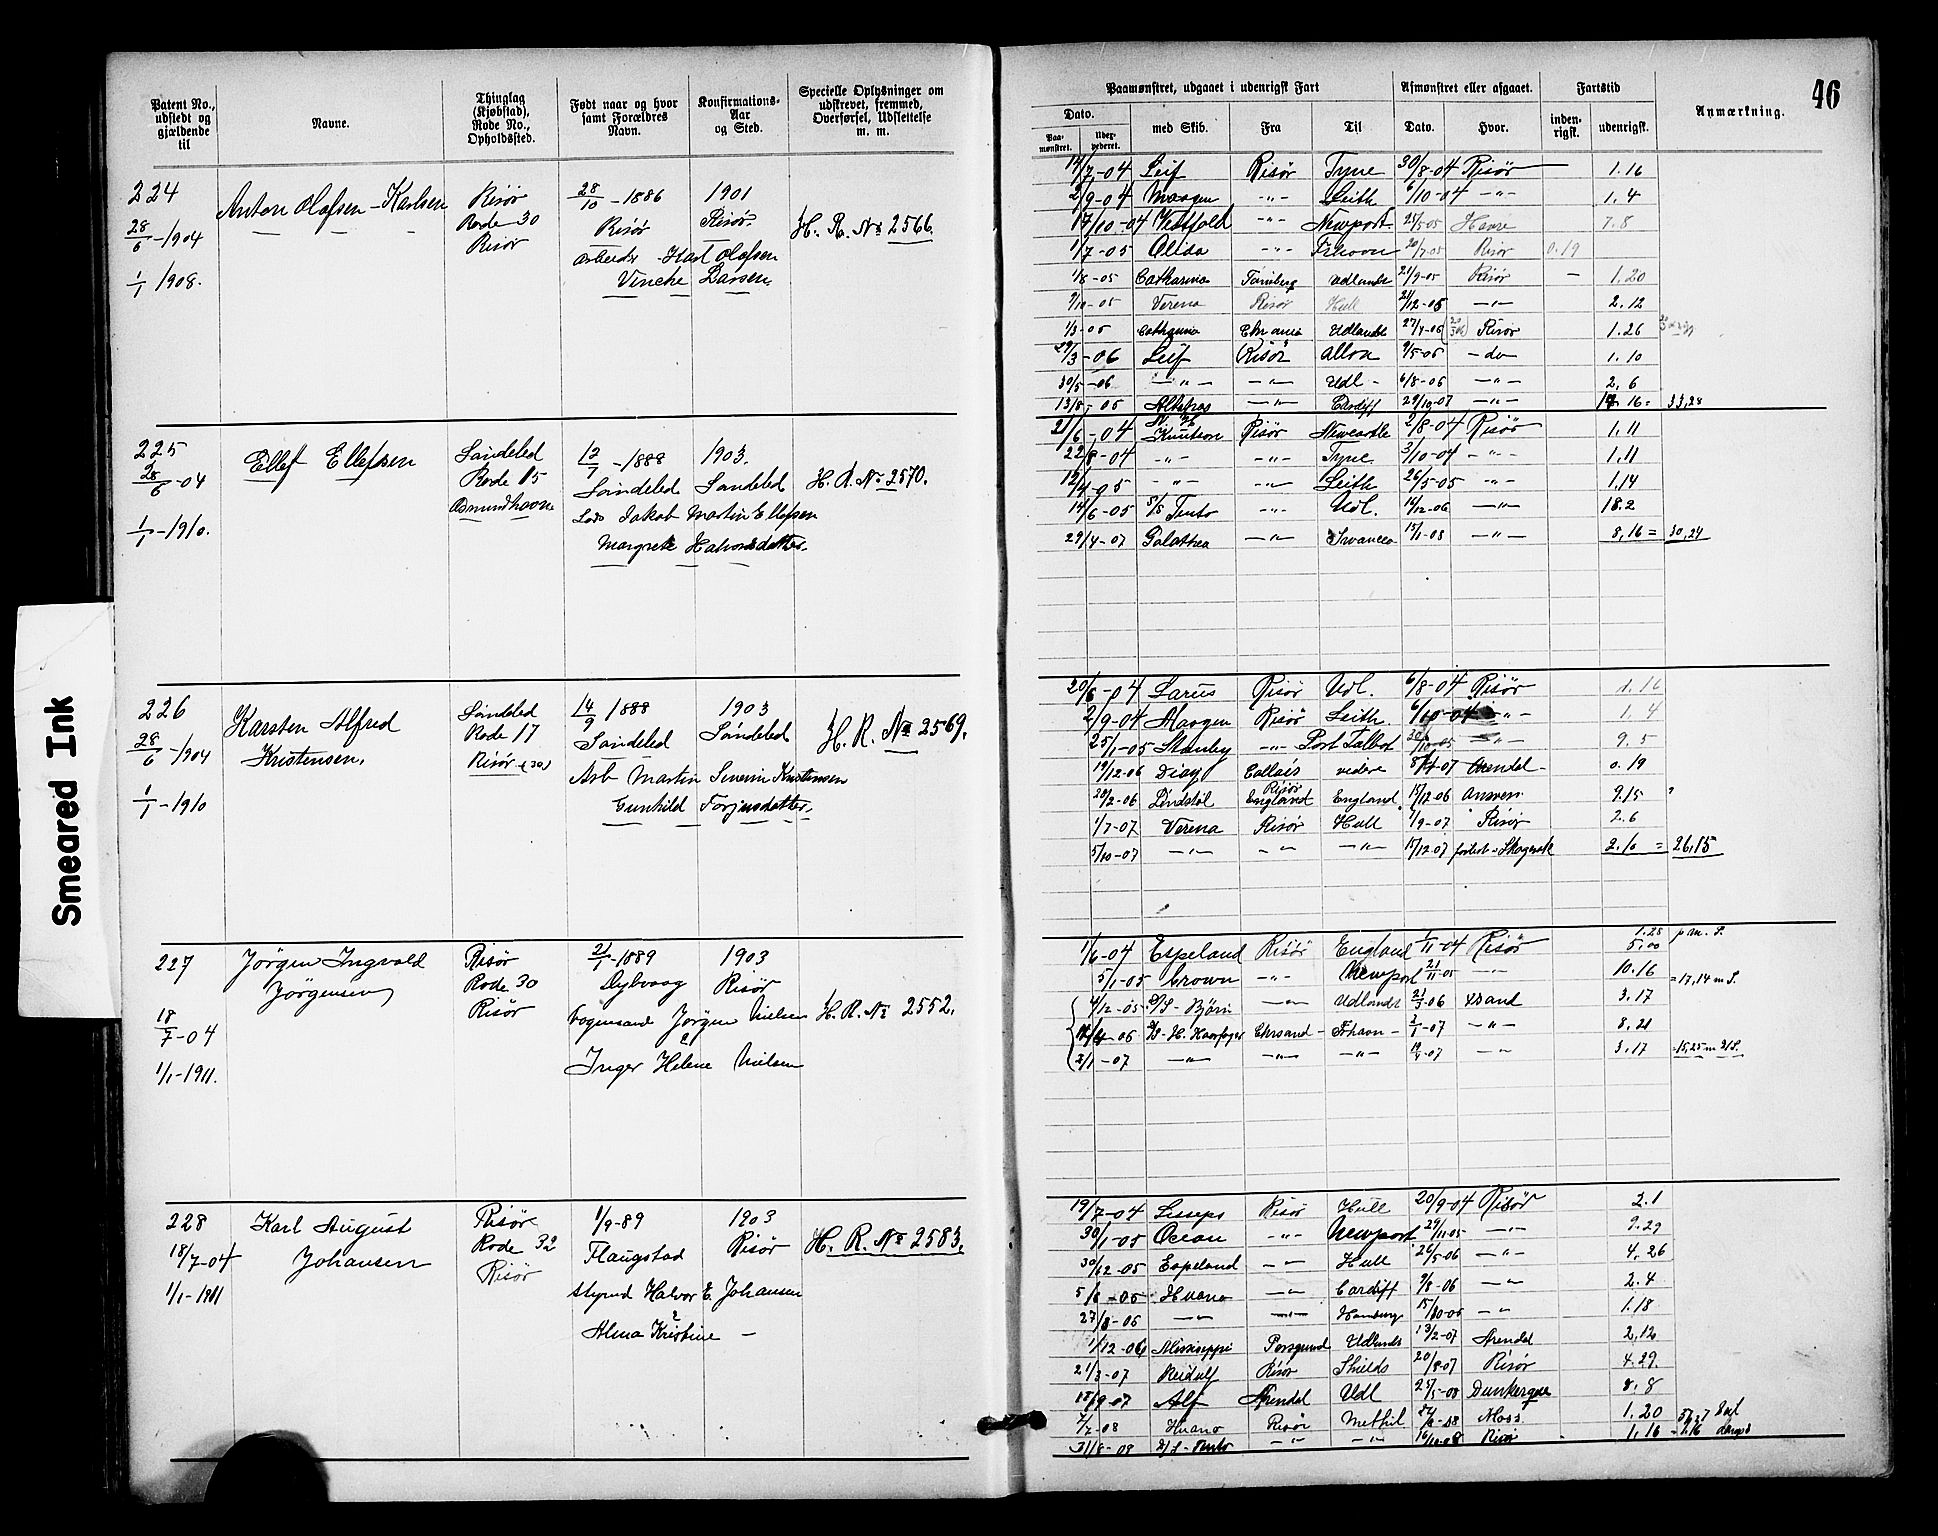 46
Patent No., udstedt og gjældende til
Navne.
Thinglag (Kjøbstad), Rode No., Opholdssted.
Født naar og hvor samt Forældres Navn.
Konfirmations-Aar og Sted.
Specielle Oplysninger om udskrevet, fremmed, Overførsel, Udslettelse m. m.
Paamønstret, udgaaet i udenrigsk Fart
Afmønstret eller afgaaet.
Fartstid
Anmærkning.
Dato.
med Skib.
Fra
Til
Dato.
Hvor.
inden-rigsk.
udenrigsk.
Paa-mønstret.
224
28/6-1904
1/1 1908.
Anton Olafsen-Karlsen
Risör
Rode 30
Risör
28/10-1886
Risör
arbeider Karl Olafsen
Vinche Larsen
1901
Risör
H. R. No 2566.
14/7-04 Leif Risör Tyne 30/8-04 Risör 1.16
2/9-04 Maagen -"- Leith 6/10-04 -"- 1.4
17/10-04 Vestfold -"- Newport 25/5-05 Havre 7.8
1/7-05 Olida -"- Frhavn 20/7-05 Risör 0.19
1/8-05 Catharina Tönsberg Udlandet 21/9-05 Risör - 1.20
9/10-05 Verena Risör Hull 21/12-05 -"- 2.12
1/3-05 Catharina Udlandet 27/4-05 Risör 1.26
29/3-06 Leif Risör Alloa 9/5-06 -do 1.10
30/5-06 -"- -"- Udl- 6/8-06 -"- 2.6
13/8-05 -"- Cardiff 29/10-07 -"- 16= 33,28
225
28/6-04
1/1-1910.
Ellef Ellefsen
Söndeled
Rode 15
Osmundhavn
12/7-1888
Söndeled
Lods Jakob Martin Ellefsen
Margrete Halvorsdatter
1903.
Söndeled
H. R. No 2570.
21/6-04 Knutson Risör Newcastle 2/8-04 Risör 1.11
22/8-04 -"- -"- Tyne 3/10-04 -"- 1.11
12/4-05 -"- -"- Leith 26/5-05 -"- 1.14
14/6-05 S/S Tento -"- Udl. 14/12-06 -"- 18.2
29/4-07 Galathea -"- Swansea 15/1-08 -"- 8,16= 30,24
226
28/6-1904
1/1-1910
Karsten Alfred
Kristensen,
Söndeled
Rode 17
Risör (30)
14/9 1888
Söndeled
Arb Martin Severin Kristensen
Gunhild Torjusdatter
1903
Söndeled
H. R. No 2569.
20/6-04 Larus Risör Udl. 6/8-04 Risör 1.16
2/9-04 Maagen Risör Leith 6/10-04 -"- 1.4
25/1-05 Stanley -"- Port Talbot 30/10-05 -"- 9.5
19/12-06 Diaz Callais videre Arendal- 0.19
20/2-06 Lindstöl Risör England England 15/12-06 9.15
1/7-07 Verena Risör Hull 1/9-07 Risör 2.6
5/10-07 -"- -"- -"- 15/12-07 forlist i Skagerak 2.10 = 26,15
227
18/7-04
1/1-1911.
Jörgen Ingvald
Jörgensen
Risör
Rode 30
Risör
21/1-1889
Dybvaag
Vognmand Jörgen Nielsen
Inger Helene Nielsen
1903
Risör
H. R. No 2552.
1/6-04 Espeland Risör England 1/11-04 Risör 1.25 5.00 p m. S.
5/1-05 Crown -"- Newport 21/11-05 -"- 10.16 = 17,14 m S.
4/12-05 D/S- Björn -"- Udlandet 21/3-06 Xsand 3.17
-06 D/S- H. Haarfager Chrsand- Frhavn- 2/1-07 -"- 8,21
2/1-07 -"- -"- -"- -07 -"- 3,17 =15,25 m D/S.
228
18/7-04
1/1-1911
Karl August
Johansen
Risör
Rode 32
Risör
1/9-89
Flaugstad
styrmd Halvor E. Johansen
Alma Kristine -
1903
Risör
H. R. No 2583.
19/7-04 Lesseps Risör Hull 20/9-04 Risör 2.1
30/1-05 Ocean -"- Newport 29/11-05 -"- 9.29
30/12-05 Espeland -"- Hull 26/5-06 -"- 4.26
5/6-05 Huano -"- Cardiff 9/8-06 -"- 2.4
27/8-06 -"- -"- Hamburg 15/10-06 -"- 1.18
1/12-06 Mississippi Porsgrund Udlandet 13/2-07 Arendal 2,12
21/3-07 Reidulf Risör Shields 20/8-07 Risör 4.29.
18/9-07 Alf Arendal Udl 25/5-08 Dunkerque 8.8
7/7-08 Huano Risör Methil -08 Moss 1.20
31/8-08 D/S-Tento -"- -"- 16/10-08 Risör 1,16
Smeared Ink